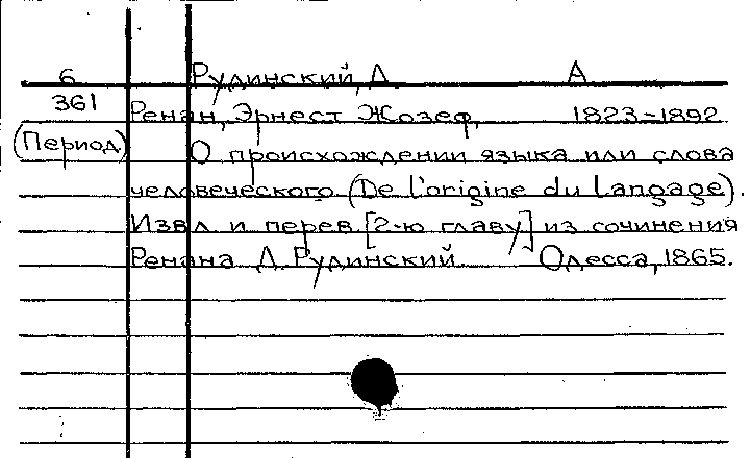 6 Рудинский, Д. А
361 Ренан, Эрнест Жозеф, 1823-1892
(Период) О происхождении языка или слова
человеческого (De l'origine du langage).
Извл и перев. [2-ю главу] из сочинения
Ренана Д. Рудинский. Одесса, 1865.